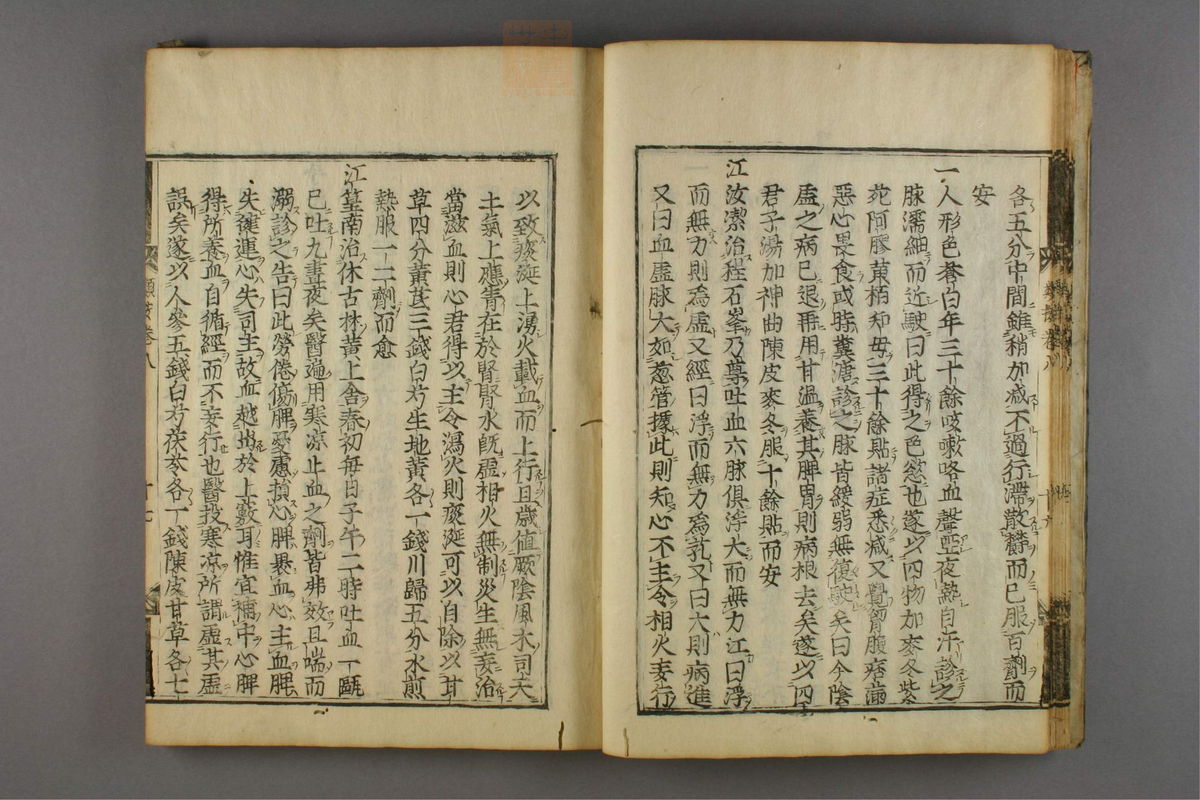 各五分中間雖稍加減不過行滯散欝而已服百劑而
安
一人形色蒼白年三十餘咳嗽咯血聲啞夜熱自汗診之
脉濡細而近駛曰此得之色慾也遂以四物加麥冬紫
菀阿膠黄栢知毋三十餘貼諸症悉減又覺胷腹痞滿
惡心畏食或時糞溏診之脉皆緩弱無復駛矣曰今陰
虛之病已退再用甘温養其脾胃則病根去矣遂以四
君子湯加神曲陳皮麥冬服十餘貼而安
江汝潔治程石峯乃尊吐血六脉俱浮大而無力江曰浮
而無力則爲虛又經曰浮而無力爲芤又曰大則病進
又曰血虛脉大如葱管據此則知心不主令相火妄行
以致痰涎上湧火載血而上行且歳值厥陰風木司天
土氣上應眚在於腎腎水旣虛相火無制災生無妄治
當滋血則心君得以主令瀉火則痰涎可以自除以甘
草四分黄芪三錢白芍生地黄各一錢川歸五分水煎
熱服一二劑而愈
江篁南治休古林黄上舍春初每日子午二時吐血一甌
已吐九晝夜矣醫遍用寒凉止血之劑皆弗效且喘而
溺診之告曰此勞倦傷脾憂慮損心脾裹血心主血脾
失健運心失司主故血越出於上竅耳惟宜補中心脾
得所養血自循經而不妄行也醫投寒凉所謂虛其虛
誤矣遂以人參五錢白芍茯苓各一錢陳皮甘草各七